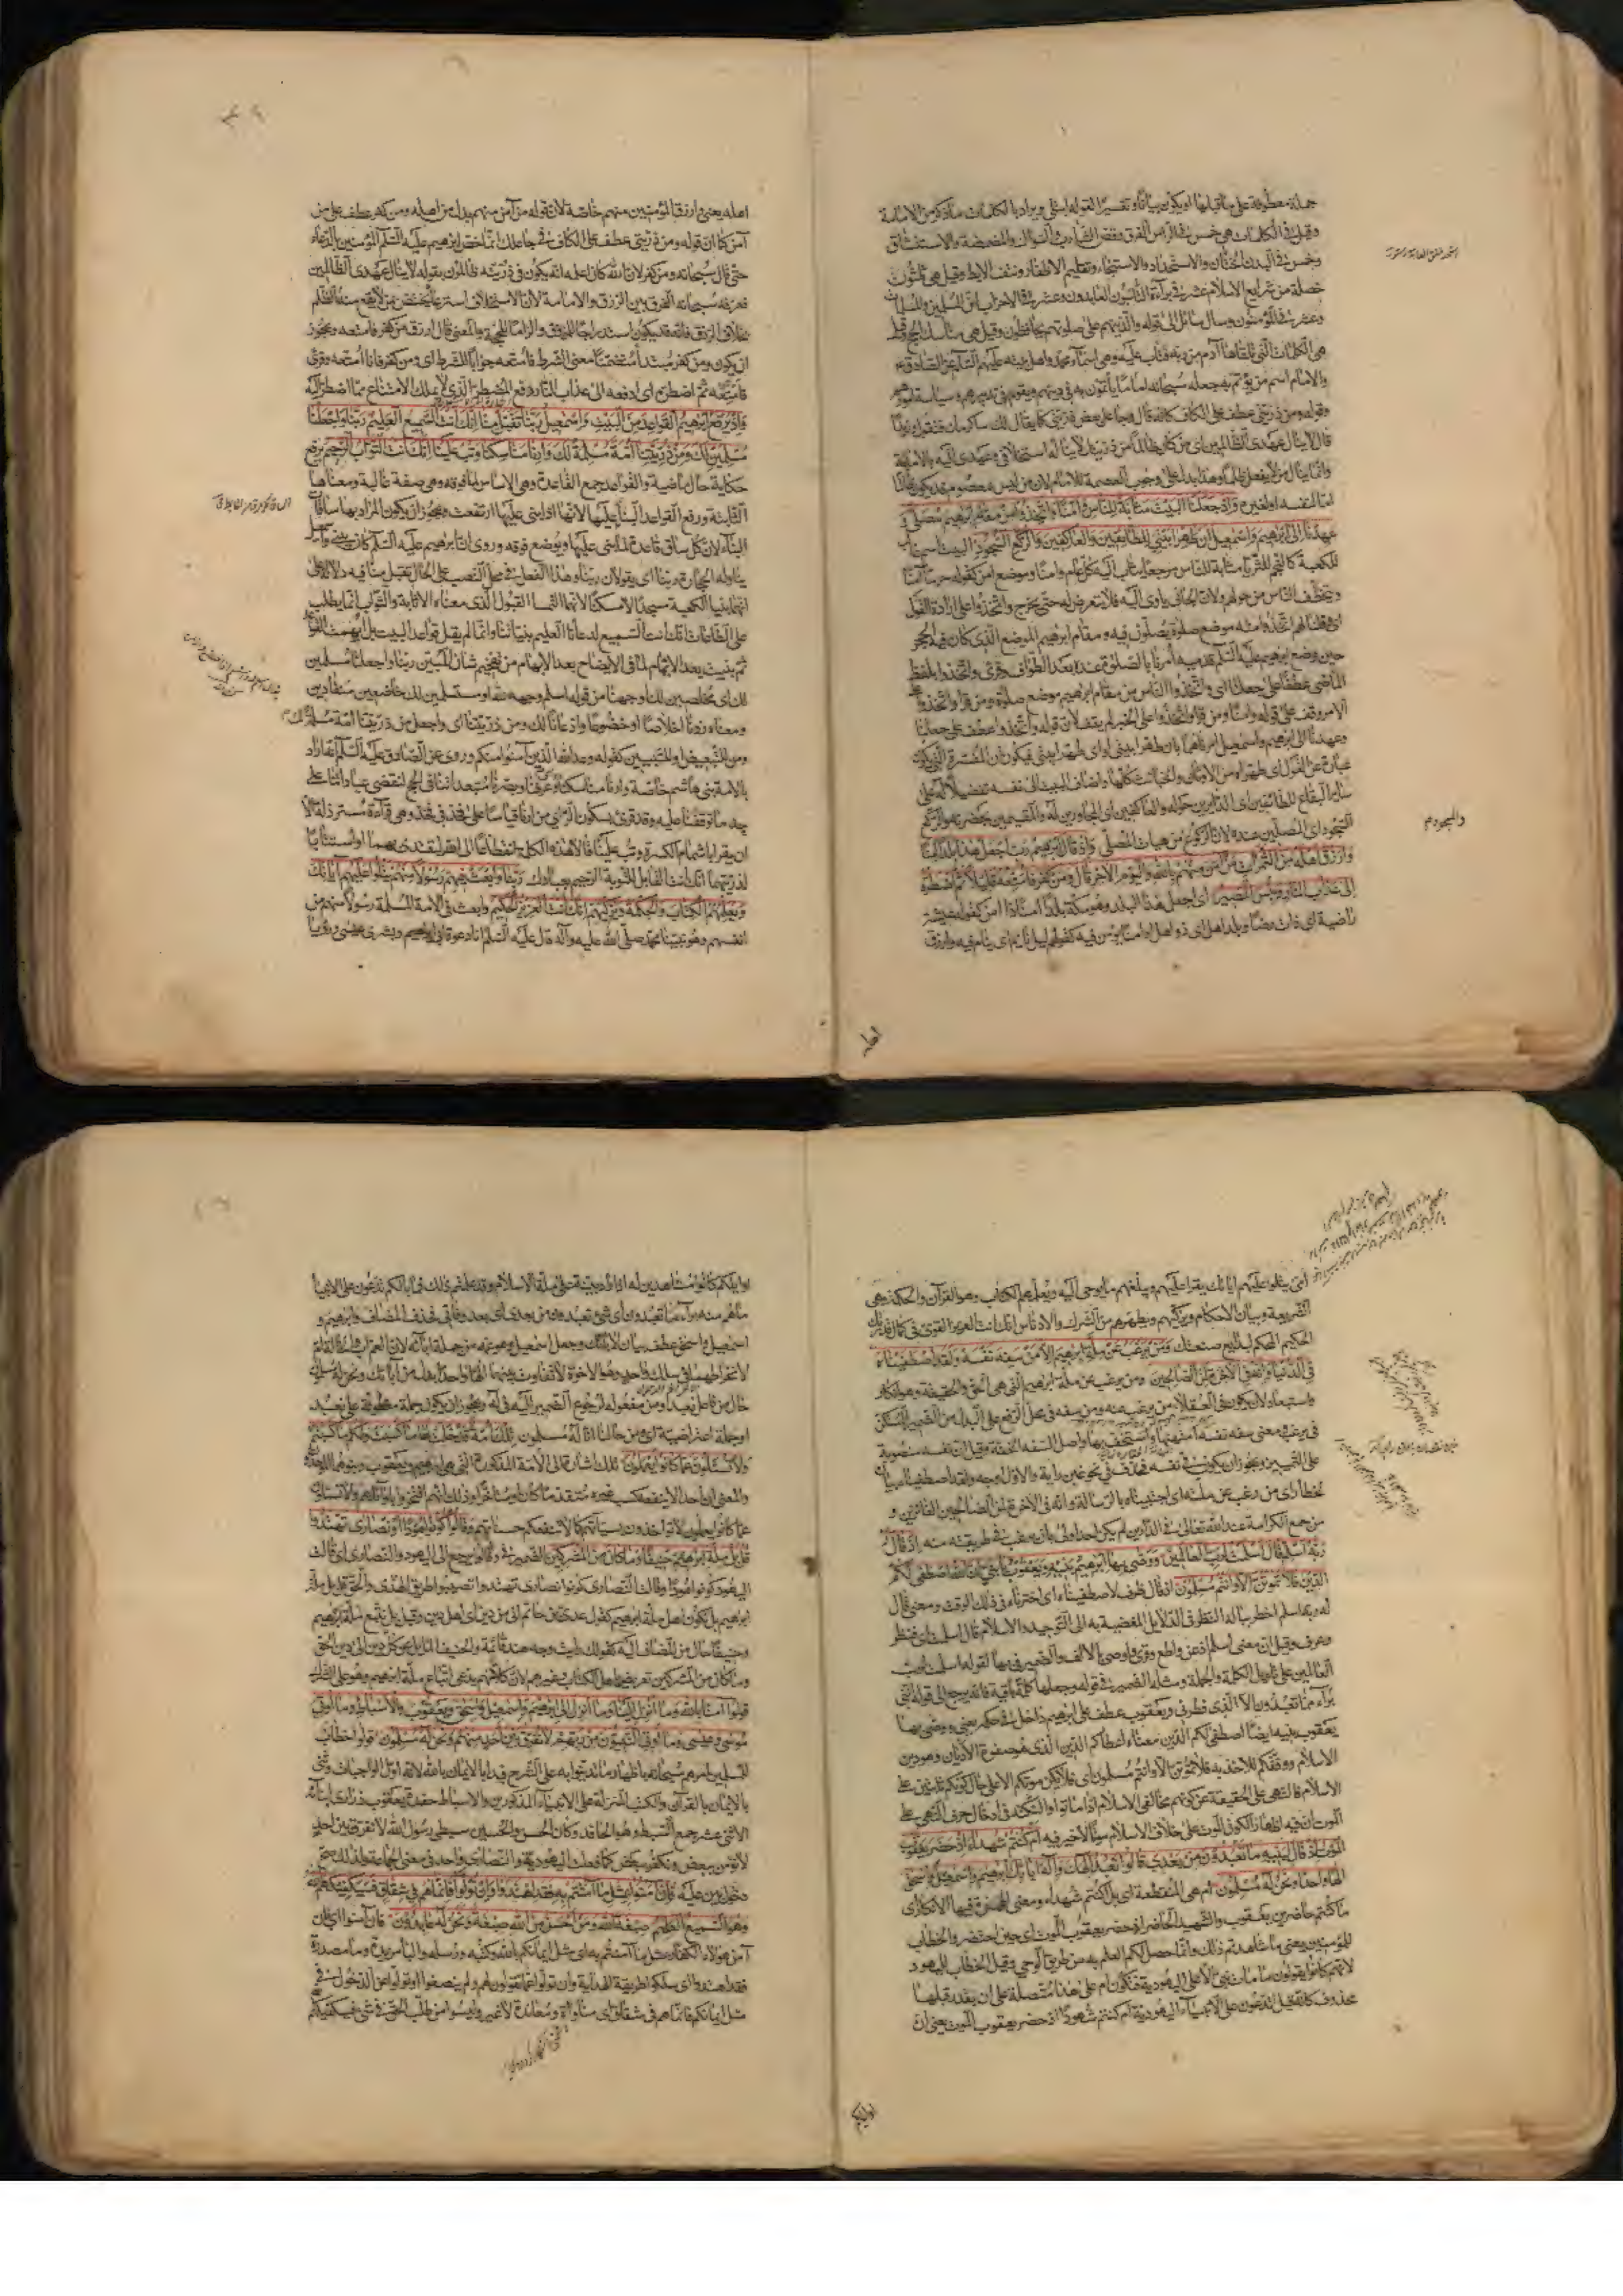 جملة معطوفة على ما قبلها او يكون بيانا وتفسيرا لقوله ابتلى ويراد بالكلمات ما ذكره من الامامة
وقيل فى الكلمات هى خمس فى الراس الفرق وقص الشارب والسواك والمضمضة والاستنشاق
وخمس فى البدن الختان والاستحداد والاستنجاء وتقليم الاظفار ونتف الابط وقيل هى ثلثون
خصلة من شرايع الاسلام عشر فى براءة التائبون العابدون وعشر فى الاحزاب ان المسلمين والمسلمات
وعشر فى المؤمنون وسال سائل الى قوله والذينهم على صلوتهم يحافظون وقيل هى مناسك الحج وقيل
هى الكلمات التى تلقاها آدم من ربه فتاب عليه وهى اسماء محمد واهل بيته عليهم السلم عن الصادق ع
والامام اسم من يؤتم به جعله سبحانه اماما ياتمون به فى دينهم ويقوم فى تدبيرهم وسياسة امورهم
وقوله ومن ذريتى عطف على الكاف كانه قال وجاعل بعض ذريتى كما يقال لك ساكرمك فتقول وزيدا
قال لا ينال عهدى الظالمين اى من كان ظالما من ذريتك لا يناله استخلافى وعهدى اليه بالامامة
وانما ينال من لا يفعل ظلما وهذا يدل على وجوب العصمة للامام لان من ليس بمعصوم فقد يكون ظالما
اما لنفسه او لغيره واذ جعلنا البيت مثابة للناس وامنا واتخذوا من مقام ابرهيم مصلى و
عهدنا الى ابرهيم واسمعيل ان طهرا بيتى للطائفين والعاكفين والركع السجود البيت اسم غالب
للكعبة كالنجم للثريا مثابة للناس مرجعا يثاب اليه كل عام وامنا وموضع امن كقوله حرما آمنا
ويتخطف الناس من حولهم ولان الجانى ياوى اليه فلا يتعرض له حتى يخرج واتخذوا على ارادة القول
اى وقلنا لهم اتخذوا منه موضع صلوة يصلون فيه ومقام ابرهيم الموضع الذى كان فيه الحجر
حين وضع ابرهيم عليه السلم قدميه أمرنا بالصلوة عنده بعد الطواف وقرئ واتخذوا بلفظ
الماضى عطفا على جعلنا اى واتخذوا الناس من مقام ابرهيم موضع صلوة ومن قرا واتخذوا على
الامر وقف على قوله وامنا ومن قرا واتخذوا على الخبر لم يقف لان قوله واتخذوا عطف على جعلنا
وعهدنا الى ابرهيم واسمعيل امرناهما بان طهرا بيتى او اى طهرا بيتى فيكون ان المفسرة التى تكون
عبارة عن القول اى طهراه من الاوثان والخبائث كلها واضاف البيت الى نفسه تفضيلا له على
سائر البقاع للطائفين اى الدايرين حوله والعاكفين اى المجاورين له والمقيمين بحضرته والركع
السجود اى المصلين عنده لان الركوع من هيات المصلى واذ قال ابرهيم رب اجعل هذا بلدا آمنا
وارزق اهله من الثمرات من آمن منهم بالله واليوم الاخر قال ومن كفر فامتعه قليلا ثم اضطره
الى عذاب النار وبئس المصير اى اجعل هذا البلد وهو مكة بلدا آمنا ذا امن كقوله عيشة
راضية اى ذات رضا وبلد اهل اى ذو اهل او آمنا يؤمن فيه كقولهم ليل نائم اى ينام فيه وارزق
والسجود م
اهله
اهله يعنى وارزق المؤمنين منهم خاصة لان قوله من آمن منهم بدل من اهله ومن كفر عطف على من
آمن كما ان قوله ومن ذريتى عطف على الكاف فى جاعلك انما خص ابرهيم عليه السلم المؤمنين بالدعاء
حتى قال سبحانه ومن كفر لان الله كان اعلمه انه يكون فى ذريته ظالمون بقوله لا ينال عهدى الظالمين
فعرفه سبحانه الفرق بين الرزق والامامة لان الاستخلاف استرعاء يختص بمن لا يقع منه الظلم
بخلاف الرزق فانه قد يكون استدراجا للمرزوق والزاما للحجة والمعنى قال ارزق من كفر فامتعه ويجوز
ان يكون ومن كفر مبتدأ متضمنا معنى الشرط فامتعه جوابا للشرط اى ومن كفر فانا امتعه وقرئ
فامتعه ثم اضطره اى ادفعه الى عذاب النار دفع المضطر الذى لا يملك الامتناع مما اضطر اليه
واذ يرفع ابرهيم القواعد من البيت واسمعيل ربنا تقبل منا انك انت السميع العليم ربنا واجعلنا
مسلمين لك ومن ذريتنا امة مسلمة لك وارنا مناسكنا وتب علينا انك انت التواب الرحيم يرفع
حكاية حال ماضية والقواعد جمع القاعدة وهى الاساس لما فوقه وهى صفة غالبة ومعناها
الثابتة ورفع القواعد البناء عليها لانها اذا بنى عليها ارتفعت ويجوز ان يكون المراد بها سافات
البناء لان كل ساف قاعدة لما يبنى عليها ويوضع فوقه وروى ان ابرهيم عليه السلم كان يبنى واسمعيل
يناوله الحجارة ربنا اى يقولان ربنا وهذا الفعل فى محل النصب على الحال تقبل منا فيه دلالة على
انهما بنيا الكعبة مسجدا لا مسكنا لانهما التمسا القبول الذى معناه الاثابة والثواب انما يطلب
على الطاعات انك انت السميع لدعائنا العليم بنياتنا وانما لم يقل قواعد البيت بل ابهمت القواعد
ثم بينت بعد الابهام لما فى الايضاح بعد الابهام من تفخيم شان المبين ربنا واجعلنا مسلمين
لك اى مخلصين لك اوجهنا من قوله اسلم وجهه لله او مستسلمين لك خاضعين منقادين
ومعناه زدنا اخلاصا او خضوعا واذعانا لك ومن ذريتنا اى واجعل من ذريتنا امة مسلمة لك
ومن للتبعيض او للتبيين كقوله وعد الله الذين آمنوا منكم وروى عن الصادق عليه السلم انه اراد
بالامة بنى هاشم خاصة وارنا مناسكنا وعرفنا وبصرنا متعبداتنا فى الحج لنقضى عباداتنا على
حد ما توقفنا عليه وقد قرئ بسكون الراء من ارنا قياسا على فخذ فى فخذ وهى قراءة مسترذلة الا
ان يقرا باشمام الكسرة وتب علينا قالا هذه الكلمة انقطاعا الى الله ليقتدى بهما او استتابا
لذريتهما انك انت القابل للتوبة الرحيم بعبادك ربنا وابعث فيهم رسولا منهم يتلوا عليهم آياتك
ويعلمهم الكتاب والحكمة ويزكيهم انك انت العزيز الحكيم وابعث فى الامة المسلمة رسولا منهم من
انفسهم وهو نبينا محمد صلى الله عليه وآله قال عليه السلم انا دعوة ابى ابرهيم وبشرى عيسى ورؤيا
امى يتلوا عليهم اياتك يقرا عليهم ويبلغهم ما يوحى اليه ويعلمهم الكتاب وهو القرآن والحكمة وهى
الشريعة وبيان الاحكام ويزكيهم ويطهرهم من الشرك والادناس انك انت العزيز القوى فى كمال قدرتك
الحكيم المحكم لبدايع صنعتك ومن يرغب عن ملة ابرهيم الا من سفه نفسه ولقد اصطفيناه
فى الدنيا وانه فى الاخرة لمن الصالحين ومن يرغب عن ملة ابرهيم التى هى الحق والحقيقة وهو انكار
واستبعاد لان يكون فى العقلاء من يرغب عنه ومن سفه فى محل الرفع على البدل من الضمير المستكن
فى يرغب ومعنى سفه نفسه امتهنها واستخف بها واصل السفه الخفة وقيل ان نفسه منصوبة
على التمييز ويجوز ان يكون فى نفسه فحذف فى نحو غبن رايه والاول اوجه ولقد اصطفيناه بيان
لخطا راى من رغب عن ملته اى اجتبيناه بالرسالة وانه فى الاخرة لمن الصالحين الفائزين و
من جمع الكرامة عند الله تعالى فى الدارين لم يكن احد اولى بان يرغب فى طريقته منه اذ قال
ربه اسلم قال اسلمت لرب العالمين ووصى بها ابرهيم بنيه ويعقوب يا بنى ان الله اصطفى لكم
الدين فلا تموتن الا وانتم مسلمون اذ قال ظرف لاصطفيناه اى اخترناه فى ذلك الوقت ومعنى قال
له ربه اسلم اخطر بباله النظر فى الدلايل المفضية به الى التوحيد والاسلام قال اسلمت اى فنظر
وعرف وقيل ان معنى اسلم اذعن واطع وقرئ واوصى بالالف والضمير فى بها لقوله اسلمت لرب
العالمين على تاويل الكلمة والجملة ومثله الضمير فى قوله وجعلها كلمة باقية فانه يرجع الى قوله اننى
براء مما تعبدون الا الذى فطرنى ويعقوب عطف على ابرهيم داخل فى حكمه يعنى ووصى بها
يعقوب بنيه ايضا اصطفى لكم الدين معناه اعطاكم الدين الذى هو صفوة الاديان وهو دين
الاسلام ووفقكم للاخذ به فلا تموتن الا وانتم مسلمون اى فلا يكن موتكم الا على حال كونكم ثابتين على
الاسلام فالنهى على الحقيقة عن كونهم مخالفى الاسلام اذا ماتوا والنكتة فى ادخال حرف النهى على
الموت ان فيه اظهار الكون الموت على خلاف الاسلام موتا لا خير فيه ام كنتم شهداء اذ حضر يعقوب
الموت اذ قال لبنيه ما تعبدون من بعدى قالوا نعبد الهك واله آبائك ابرهيم واسمعيل واسحق
الها واحدا ونحن له مسلمون ام هى المنقطعة اى بل اكنتم شهداء ومعنى الهمزة فيها الانكار اى
ما كنتم حاضرين يعقوب والشهيد الحاضر اذ حضر يعقوب الموت اى حين احتضر والخطاب
للمؤمنين يعنى ما شاهدتم ذلك وانما حصل لكم العلم به من طريق الوحى وقيل الخطاب لليهود
لانهم كانوا يقولون ما مات نبى الا على اليهودية فتكون ام على هذا متصلة على ان يقدر قبلها
محذوف كانه قيل اتدعون على الانبياء اليهودية ام كنتم شهودا اذ حضر يعقوب الموت يعنى ان
اوايلكم
اوايلكم كانوا مشاهدين له اذ اوصى بنيه على ملة الاسلام وقد علمتم ذلك فما بالكم تدعون على الانبياء
ما هم منه براء ما تعبدون اى شئ تعبدون من بعدى اى بعد وفاتى فحذف المضاف وابرهيم و
اسمعيل واسحق عطف بيان لابائك وجعل اسمعيل وهو عمه من جملة آبائه لان العم اب والخالة ام
لانخراطهما فى سلك واحد وهو الاخوة لا تفاوت بينهما الها واحدا بدل من اله آبائك ونحن له مسلمون
حال من فاعل نعبد او من مفعوله لرجوع الضمير اليه فى له ويجوز ان يكون جملة معطوفة على نعبد
او جملة اعتراضية اى ومن حالنا انا له مسلمون تلك امة قد خلت لها ما كسبت ولكم ما كسبتم
ولا تسئلون عما كانوا يعملون تلك اشارة الى الامة المذكورة التى هى ابرهيم ويعقوب وبنوهما الموحدون
والمعنى ان احدا لا ينفعه كسب غيره متقدما كان او متاخرا وذلك انهم افتخروا باوائلهم ولا تسئلون
عما كانوا يعملون لا تؤاخذون بسيئاتهم كما لا تنفعكم حسناتهم وقالوا كونوا هودا او نصارى تهتدوا
قل بل ملة ابرهيم حنيفا وما كان من المشركين الضمير فى وقالوا يرجع الى اليهود والنصارى اى قالت
اليهود كونوا هودا وقالت النصارى كونوا نصارى تهتدوا تصيبوا طريق الهدى والحق قل بل ملة
ابرهيم بل نكون اهل ملة ابرهيم كقول عدى بن حاتم انى من دين اى اهل دين وقيل بل نتبع ملة ابرهيم
وحنيفا حال من المضاف اليه كقولك رايت وجه هند قائمة والحنيف المايل عن كل دين الى دين الحق
وما كان من المشركين تعريض باهل الكتاب وغيرهم لان كلا منهم يدعى اتباع ملة ابرهيم وهو على الشرك
قولوا آمنا بالله وما انزل الينا وما انزل الى ابرهيم واسمعيل واسحق ويعقوب والاسباط وما اوتى
موسى وعيسى وما اوتى النبيون من ربهم لا نفرق بين احد منهم ونحن له مسلمون قولوا خطاب
للمسلمين امرهم سبحانه باظهار ما تدينوا به على الشرح فبدا بالايمان بالله لانه اول الواجبات وثنى
بالايمان بالقرآن والكتب المنزلة على الانبياء المذكورين والاسباط حفدة يعقوب ذرارى ابنائه
الاثنى عشر جمع السبط وهو الحافد وكان الحسن والحسين سبطى رسول الله لا نفرق بين احد
لا نؤمن ببعض ونكفر ببعض كما فعلت اليهودية والنصارى واحد فى معنى الجماعة ولذلك صح
دخول بين عليه فان آمنوا بمثل ما آمنتم به فقد اهتدوا وان تولوا فانما هم فى شقاق فسيكفيكهم الله
وهو السميع العليم صبغة الله ومن احسن من الله صبغة ونحن له عابدون فان آمنوا اى فان
آمن هؤلاء الكفار بمثل ما آمنتم به اى مثل ايمانكم بالله وكتبه ورسله والباء مزيدة وما مصدرية
فقد اهتدوا اى سلكوا طريقة الهداية وان تولوا عما تقولون لهم ولم ينصفوا او تولوا عن الدخول فى
مثل ايمانكم فانما هم فى شقاق اى مناواة ومعاندة لا غير وليسوا من طلب الحق فى شئ فسيكفيكهم